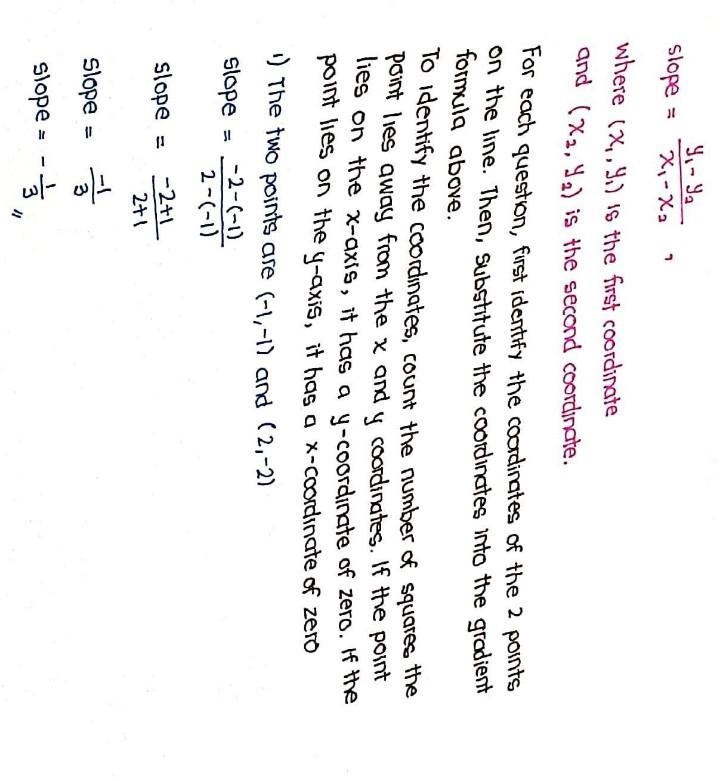 slope = y₁-y₂ / x₁-x₂ ,
where (x, y₁) is the first coordinate
and (x₂, y₂) is the second coordinate.
For each question, first identify the coordinates of the 2 points
on the line. Then, substitute the coordinates into the gradient
formula above.
To identify the coordinates, count the number of squares the
point lies away from the x and y coordinates. If the point
lies on the x-axis, it has a y-coordinate of zero. If the
point lies on the y-axis, it has a x-coordinate of zero
1) The two points are (-1,-1) and (2,-2)
slope = -2-(-1) / 2-(-1)
slope = -2+1 / 2+1
slope = -1 / 3
slope = - 1 / 3 "